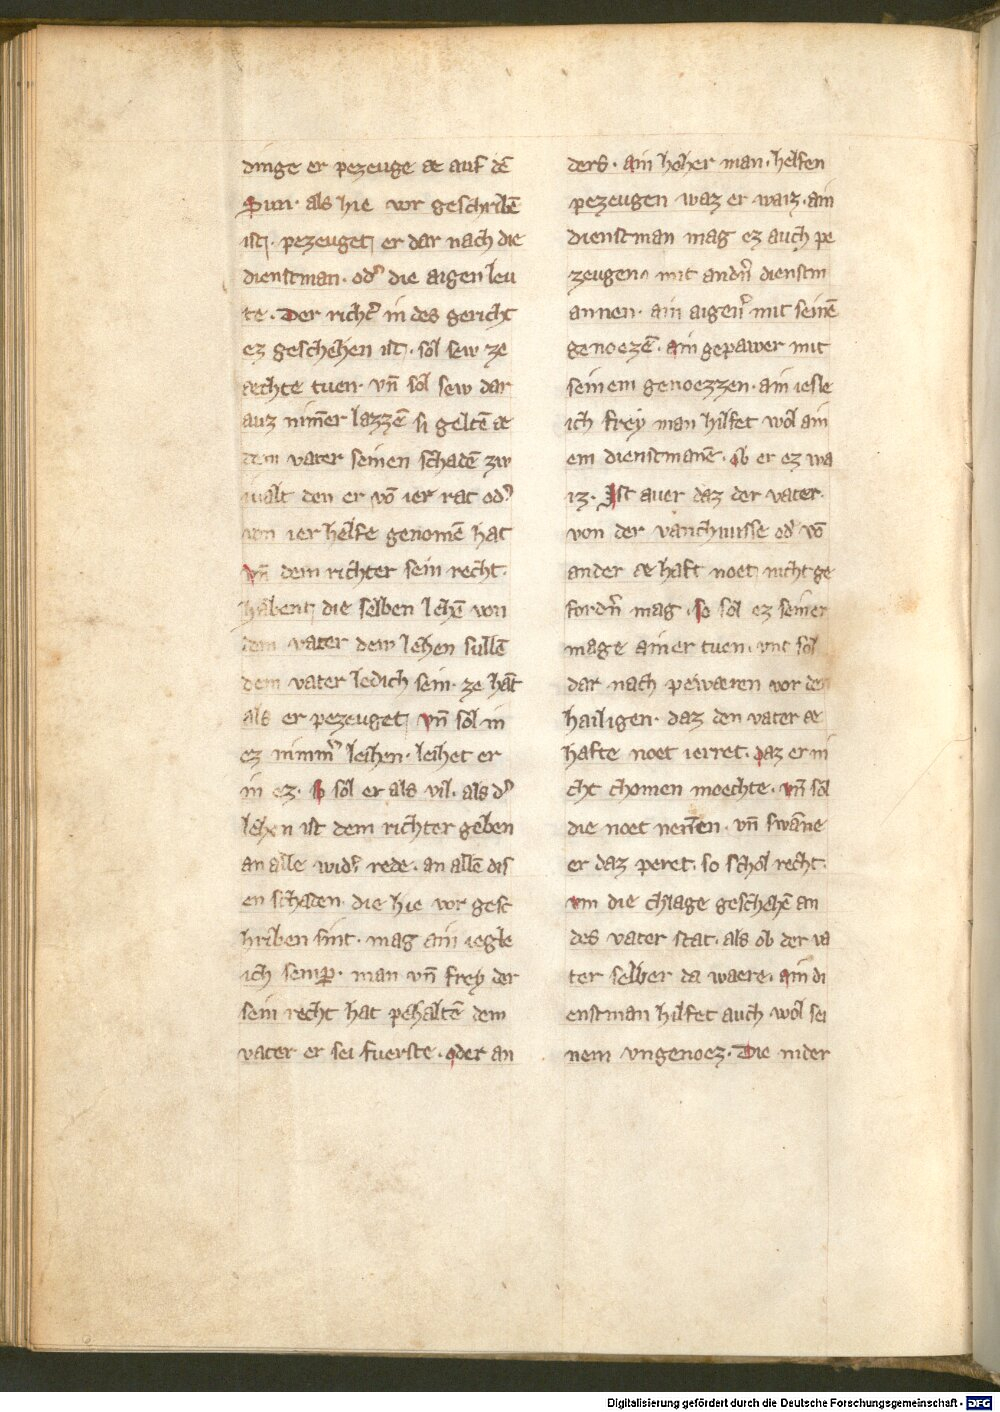 dinge er pezeuge æ auf dē
Sun· als hie vor geschribē
ist· pezeuget er dar nach die
dienstman· od᾽ die aigen leu
te· Der richt᾽ in des gericht
ez geschehen ist· sol sew ze
æchte tuen· vn̄ sol sew dar
auz nim̄er lazzē si geltē æ
dem vater seinen schadē zw
iualt den er vō ier rat od᾽
von ier helfe genomē hat
vn̄ dem richter sein recht·
habent die selben lehē von
dem vater dem lehen sullē
dem vater ledich sein· ze hāt
als er pezeuget vn̄ sol in
ez nimm᾽ leihen· leihet er
in ez· so sol er als vil· als d᾽
lehen ist dem richter geben
an alle wid᾽ rede· an allē dis
en schaden· die hie vor gesc
hriben sint· mag ain iegle
ich semp̄· man vn̄ frey der
sein recht hat pehaltē dem
vater er sei fuerste· oder an
ders· ain hoher man· helfen
pezeugen waz er waiz· ain
dienstman mag ez auch pe
zeugen· mit andn᾽ dienstm
annen· ain aigen᾽ mit seinē
genoezē· ain gepawer mit
seinem genoezzen· ain iesle
ich frey man hilfet wol ain
em dienstmanē· ob er ez wa
iz· Ist auer daz der vater·
von der vanchnusse od᾽ vō
ander æhaft noet nicht ge
fordn᾽ mag· so sol ez seiner
mage ainer tuen· vnt sol
dar nach pewæren vor den
hailigen· daz den vater æ
hafte noet ierret· daz er ni
cht chomen moechte· vn̄ sol
die noet nen̄en· vn̄ swāne
er daz peret· so schol recht·
vm die chlage geschehē an
des vater stat· als ob der va
ter selber da waere· ain di
enstman hilfet auch wol sei
nem vngenoez· Die nider
Digitalisierung gefördert durch die Deutsche Forschungsgemeinschaft - DFG